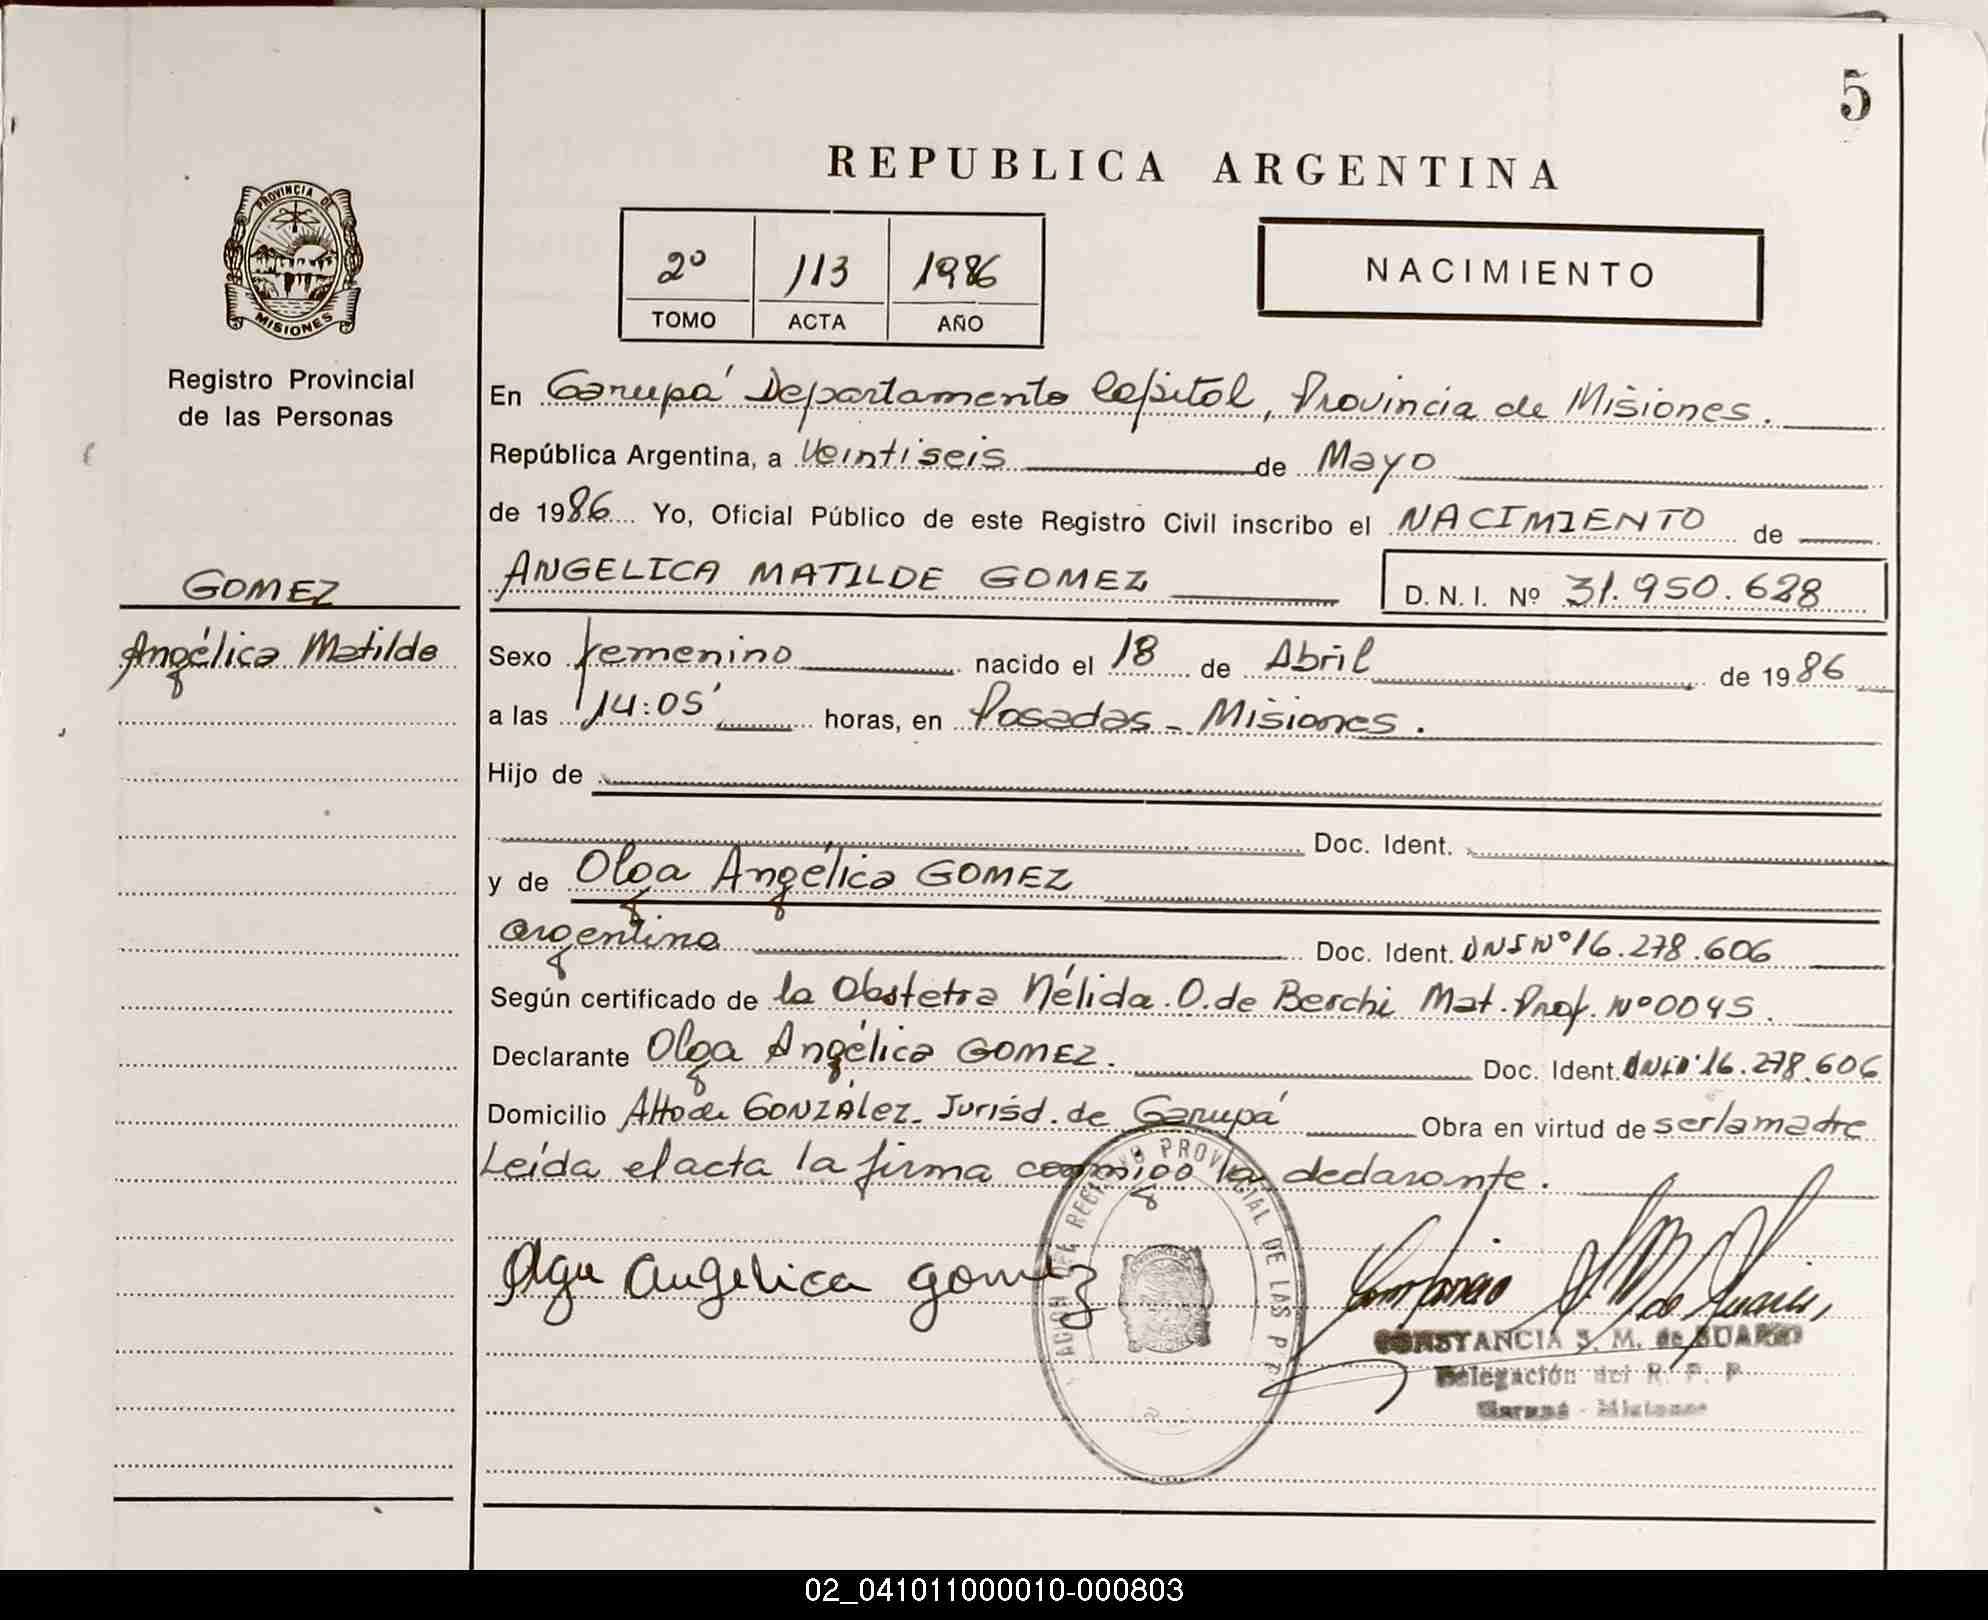 5
REPUBLICA ARGENTINA
PROVINCIA DE
MISIONES
Registro Provincial
de las Personas
2º 113 1986
TOMO ACTA AÑO
NACIMIENTO
En Garupá Departamento Capital, Provincia de Misiones.
República Argentina, a Veintiseis de Mayo
de 1986 Yo, Oficial Público de este Registro Civil inscribo el NACIMIENTO de
GOMEZ
Angélica Matilde
ANGELICA MATILDE GOMEZ D. N. I. Nº 31.950.628
Sexo femenino nacido el 18 de Abril de 1986
a las 14:05' horas, en Posadas - Misiones.
Hijo de
Doc. Ident.
y de Olga Angélica GOMEZ
argentina Doc. Ident. DNI Nº 16.278.606
Según certificado de la Obstetra Nélida.O.de Berchi Mat. Prof. Nº 0045.
Declarante Olga Angélica GOMEZ. Doc. Ident. DNI Nº 16.278.606
Domicilio Alto de GONZÁLEZ. Jurisd. de Garupá Obra en virtud de ser la madre
Leída el acta la firma conmigo la declarante.
Olga Angelica gomez
REGISTRO PROVINCIAL DE LAS
CONSTANCIA S. M. de SUAREZ
Delegación del R. P. P
Garupá - Misiones
02_041011000010-000803